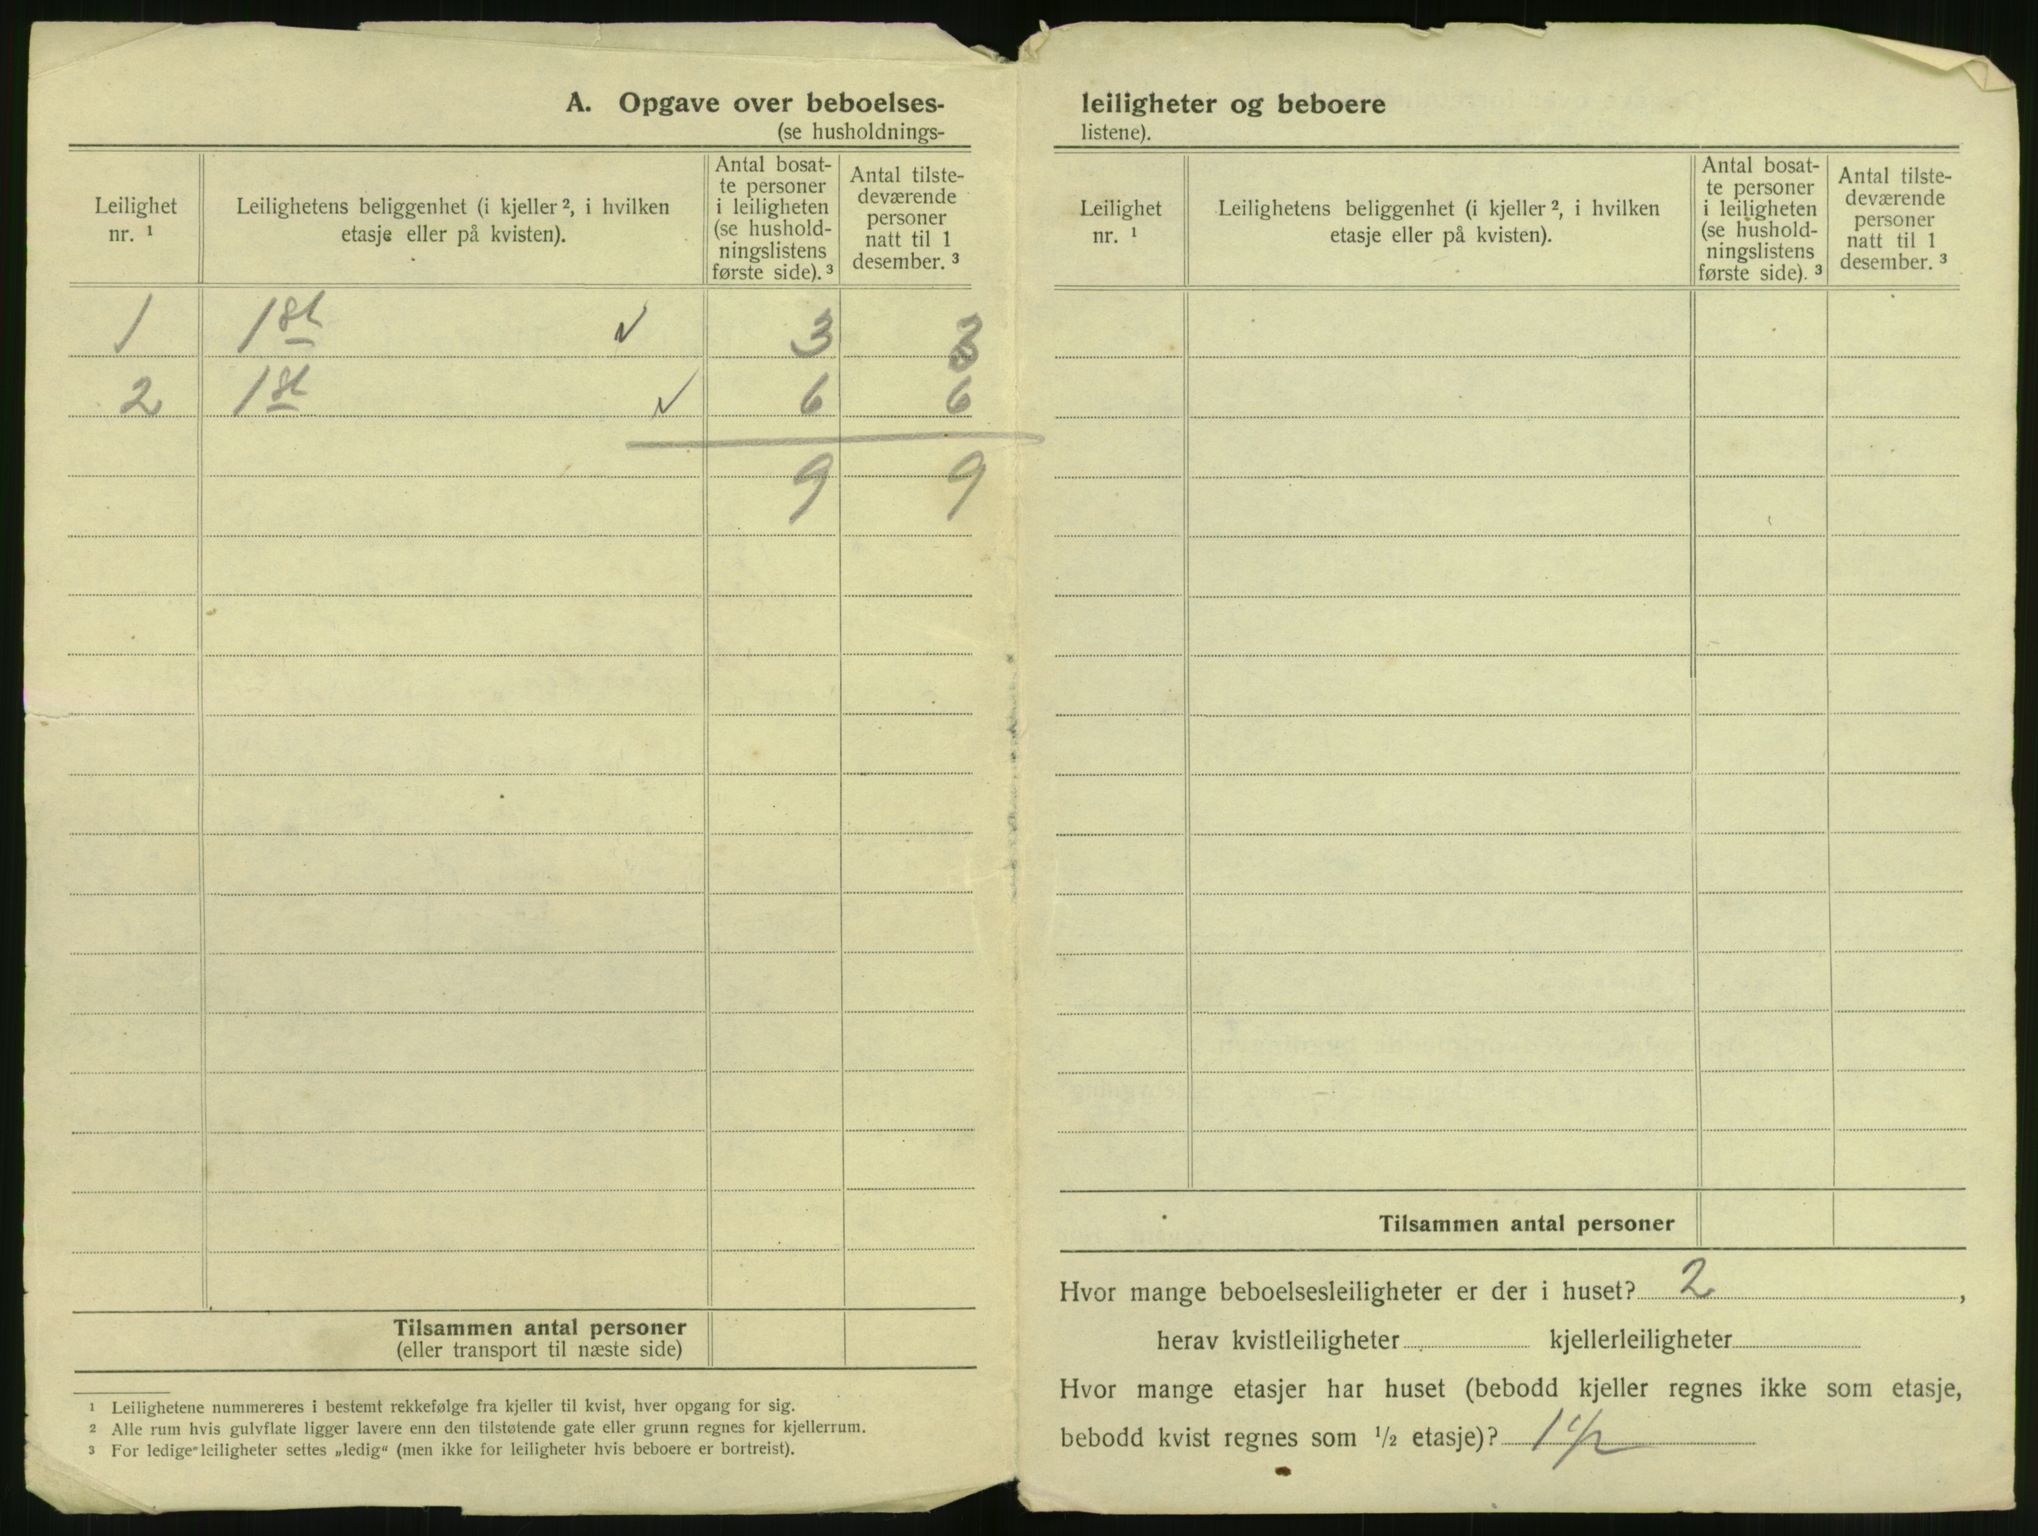 A. Opgave over beboelses-
(se husholdnings-
Leilighet
nr. ¹
Leilighetens beliggenhet (i kjeller ², i hvilken
etasje eller på kvisten).
Antal bosat-
te personer
i leiligheten
(se hushold-
ningslistens
første side). ³
Antal tilste-
deværende
personer
natt til 1
desember. ³
1 1 st 3 3
2 1 st 6 6
9 9
Tilsammen antal personer
(eller transport til næste side)
¹ Leilighetene nummereres i bestemt rekkefølge fra kjeller til kvist, hver opgang for sig.
² Alle rum hvis gulvflate ligger lavere enn den tilstøtende gate eller grunn regnes for kjellerrum.
³ For ledige leiligheter settes „ledig“ (men ikke for leiligheter hvis beboere er bortreist).
leiligheter og beboere
listene).
Leilighet
nr. ¹
Leilighetens beliggenhet (i kjeller ², i hvilken
etasje eller på kvisten).
Antal bosat-
te personer
i leiligheten
(se hushold-
ningslistens
første side). ³
Antal tilste-
deværende
personer
natt til 1
desember. ³
Tilsammen antal personer
Hvor mange beboelsesleiligheter er der i huset? 2 ,
herav kvistleiligheter kjellerleiligheter
Hvor mange etasjer har huset (bebodd kjeller regnes ikke som etasje,
bebodd kvist regnes som ½ etasje)? 1 ½